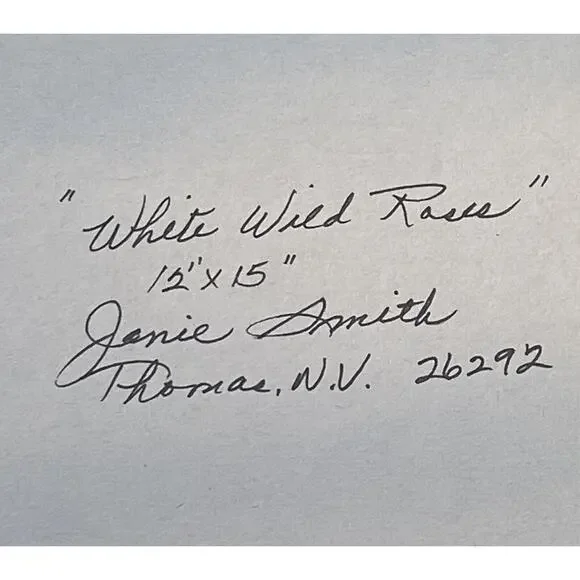 "White Wild Roses"
12" x 15"
Janie Smith
Thomas, W.V. 26292